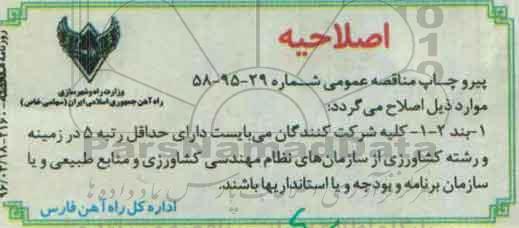 اصلاحیه
وزارت راه و شهرسازی
راه آهن جمهوری اسلامی ایران (سهامی خاص)
پیرو چاپ مناقصه عمومی شماره ۲۹-۹۵-۵۸
موارد ذیل اصلاح می گردد:
۱-بند ۲-۱- کلیه شرکت کنندگان می بایست دارای حداقل رتبه ۵ در زمینه
و رشته کشاورزی از سازمان های نظام مهندسی کشاورزی و منابع طبیعی و یا
سازمان برنامه و بودجه و یا استانداریها باشند.
اداره کل راه آهن فارس
ParsNamadData